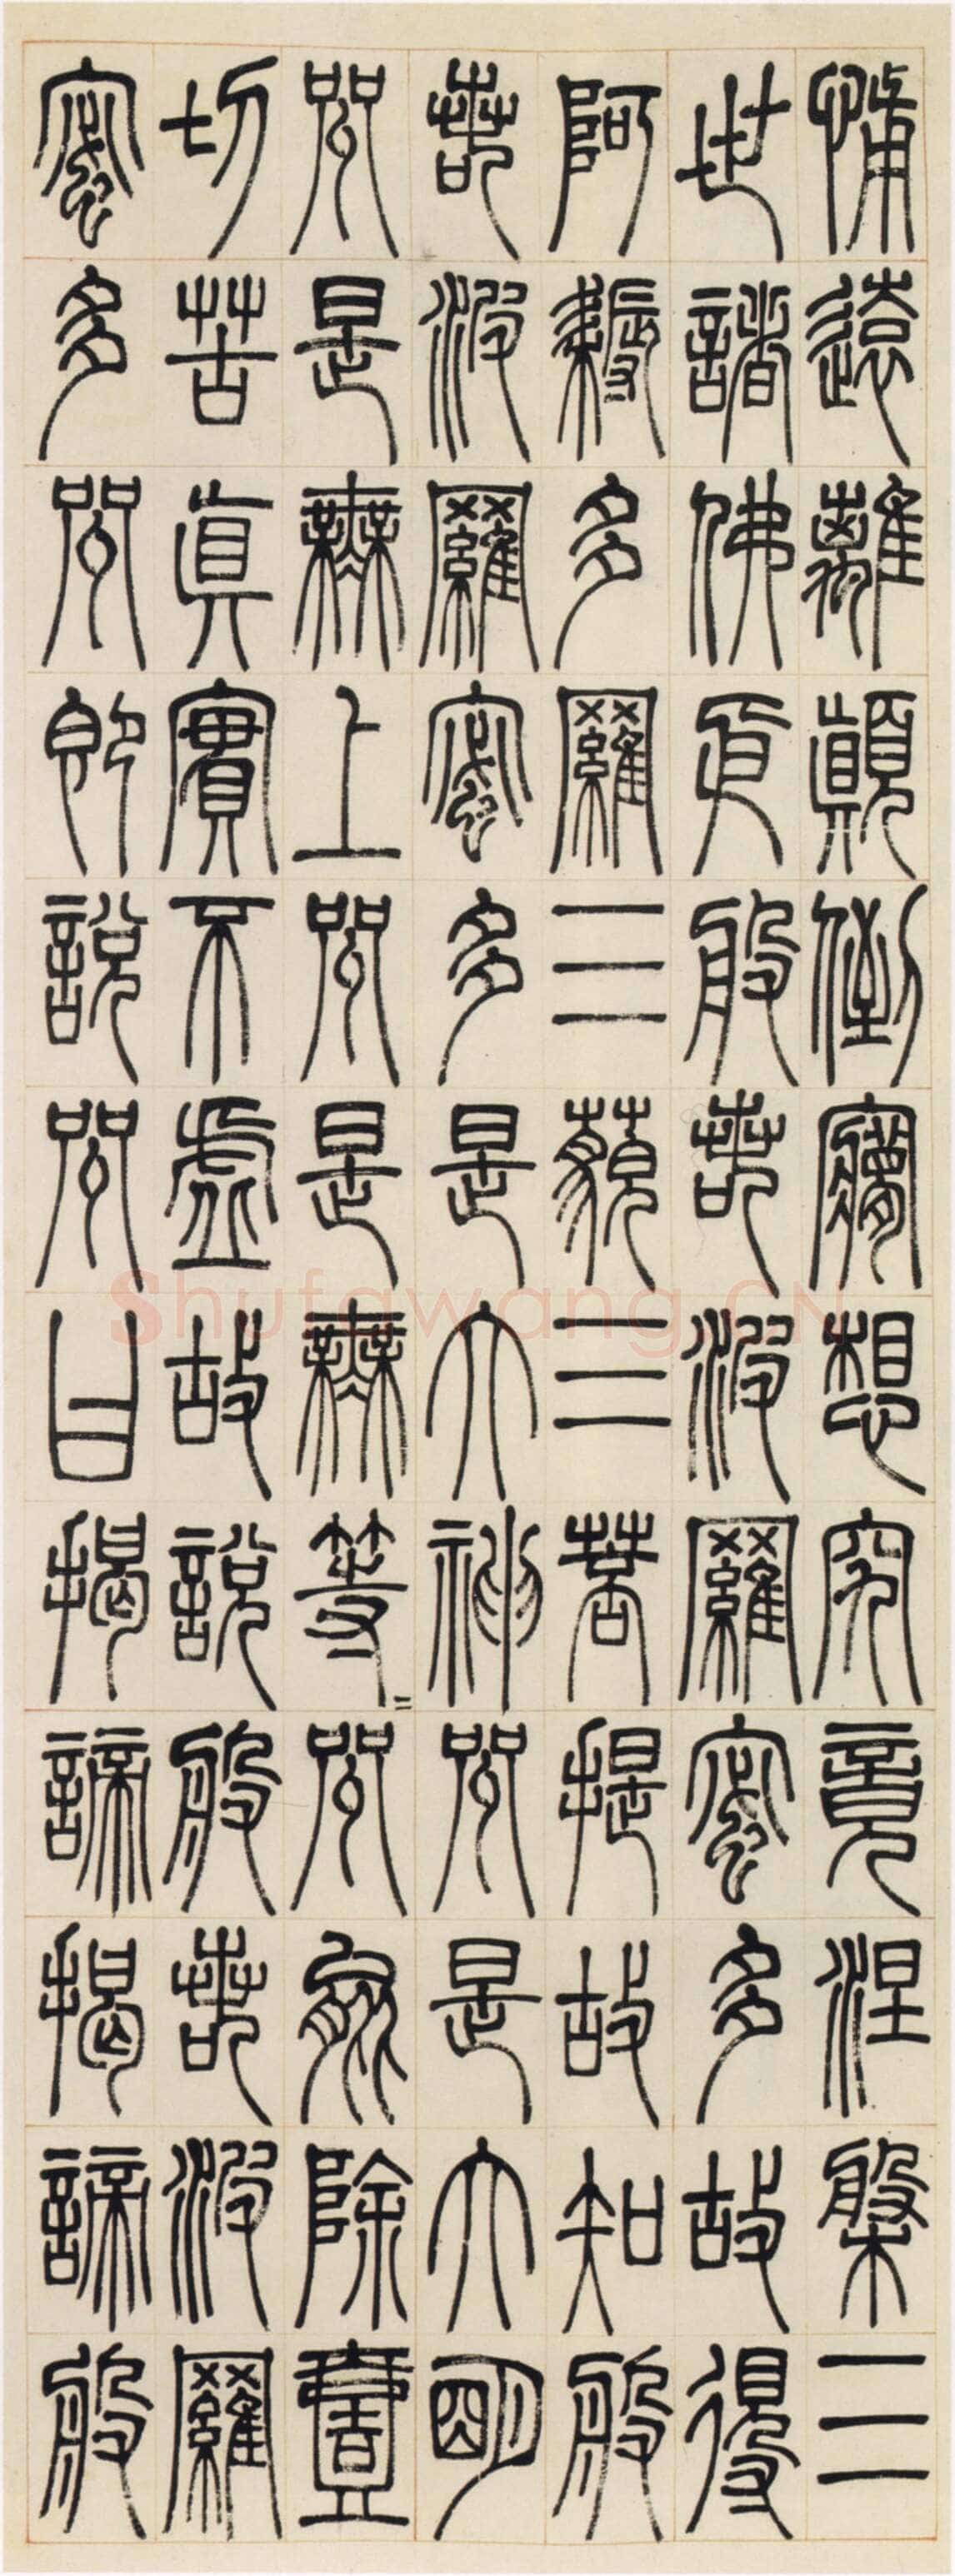 怖遠離顛倒夢想究竟涅槃三
世諸佛依般若波羅蜜多故得
阿耨多羅三藐三菩提故知般
若波羅蜜多是大神咒是大明
咒是無上咒是無等〻咒能除壹
切苦眞實不虛故說般若波羅
蜜多咒即說咒曰揭諦揭諦般
Shufawang.CN